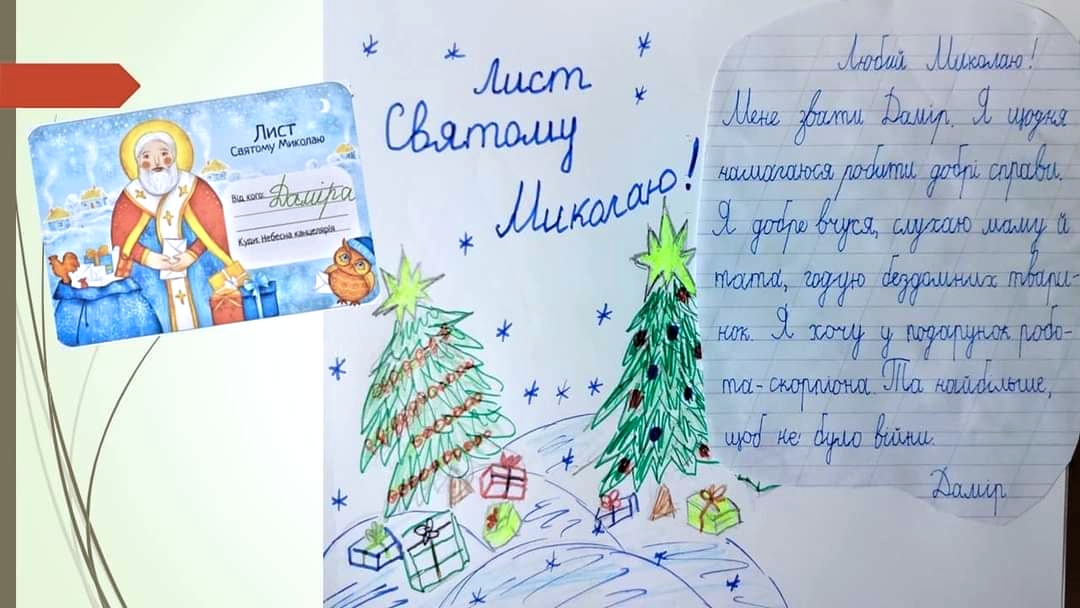 Лист
Святому Миколаю
Від кого: Даміра
Куди: Небесна канцелярія
Лист
Святому
Миколаю!
Любий Миколаю!
Мене звати Дамір. Я щодня
намагаюся робити добрі справи.
Я добре вчуся, слухаю маму й
тата, годую бездомних твари-
нок. Я хочу у подарунок робо-
та-скорпіона. Та найбільше,
щоб не було війни.
Дамір